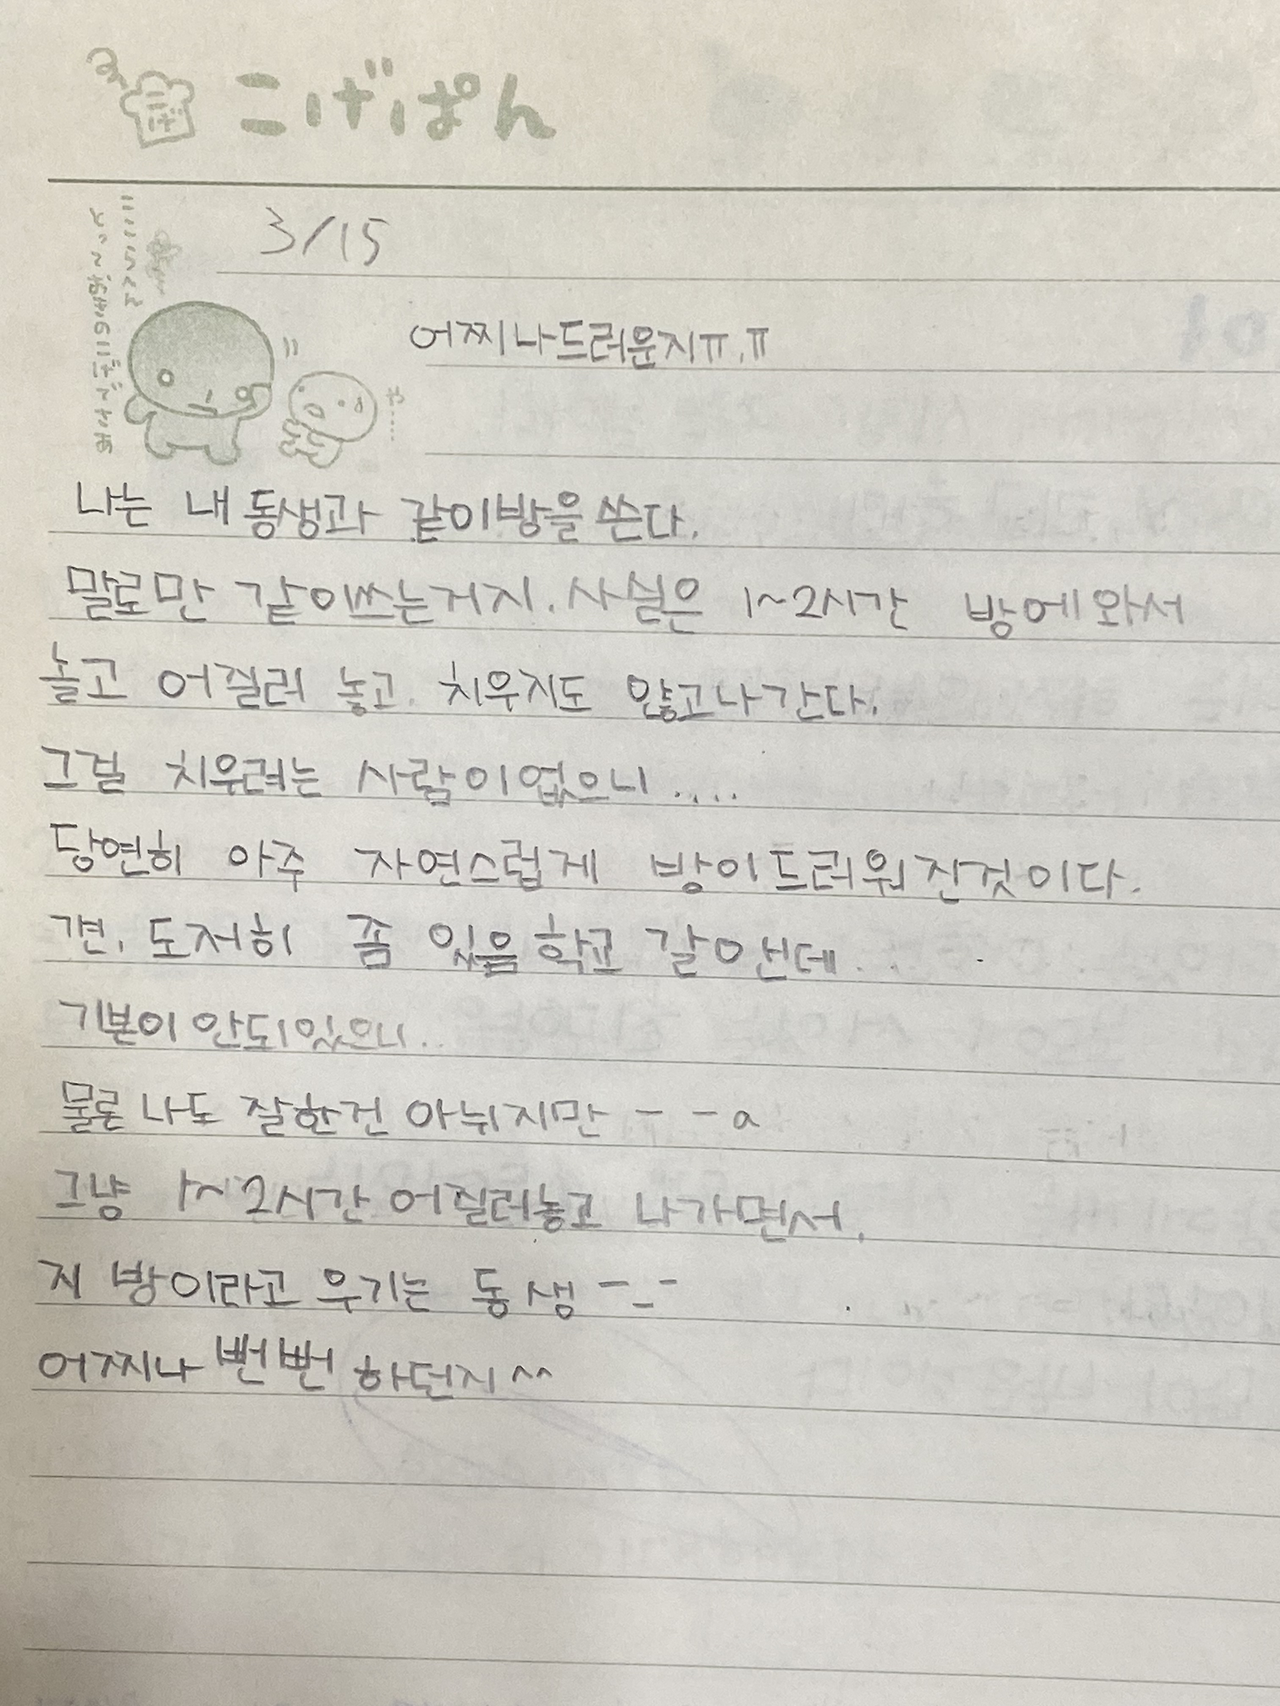 こげぱん
3/15
어찌나드러운지ㅠ.ㅠ
나는 내 동생과 같이방을 쓴다.
말로만 같이쓰는거지. 사실은 1~2시간 방에와서
놀고 어질러 놓고. 치우지도 않고나간다.
그걸 치우려는 사람이없으니....
당연히 아주 자연스럽게 방이드러워진것이다.
견. 도저히 좀 있음 학교 갈아인데...
기본이 안되있으니..
물론 나도 잘한건 아뉘지만 - - a
그냥 1~2시간 어질러놓고 나가면서.
지 방이라고 우기는 동생 -_-
어찌나 뻔뻔 하던지 ^^